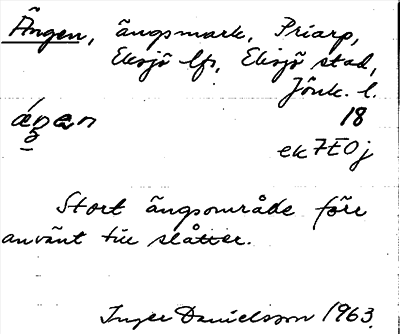 Ängen, ängsmark, Priarp,
Eksjö lfs, Eksjö stad,
Jönk. l.
18
ek 7E0j
Stort ängsområde förr
använt till slåtter.
Inger Danielsson 1963.